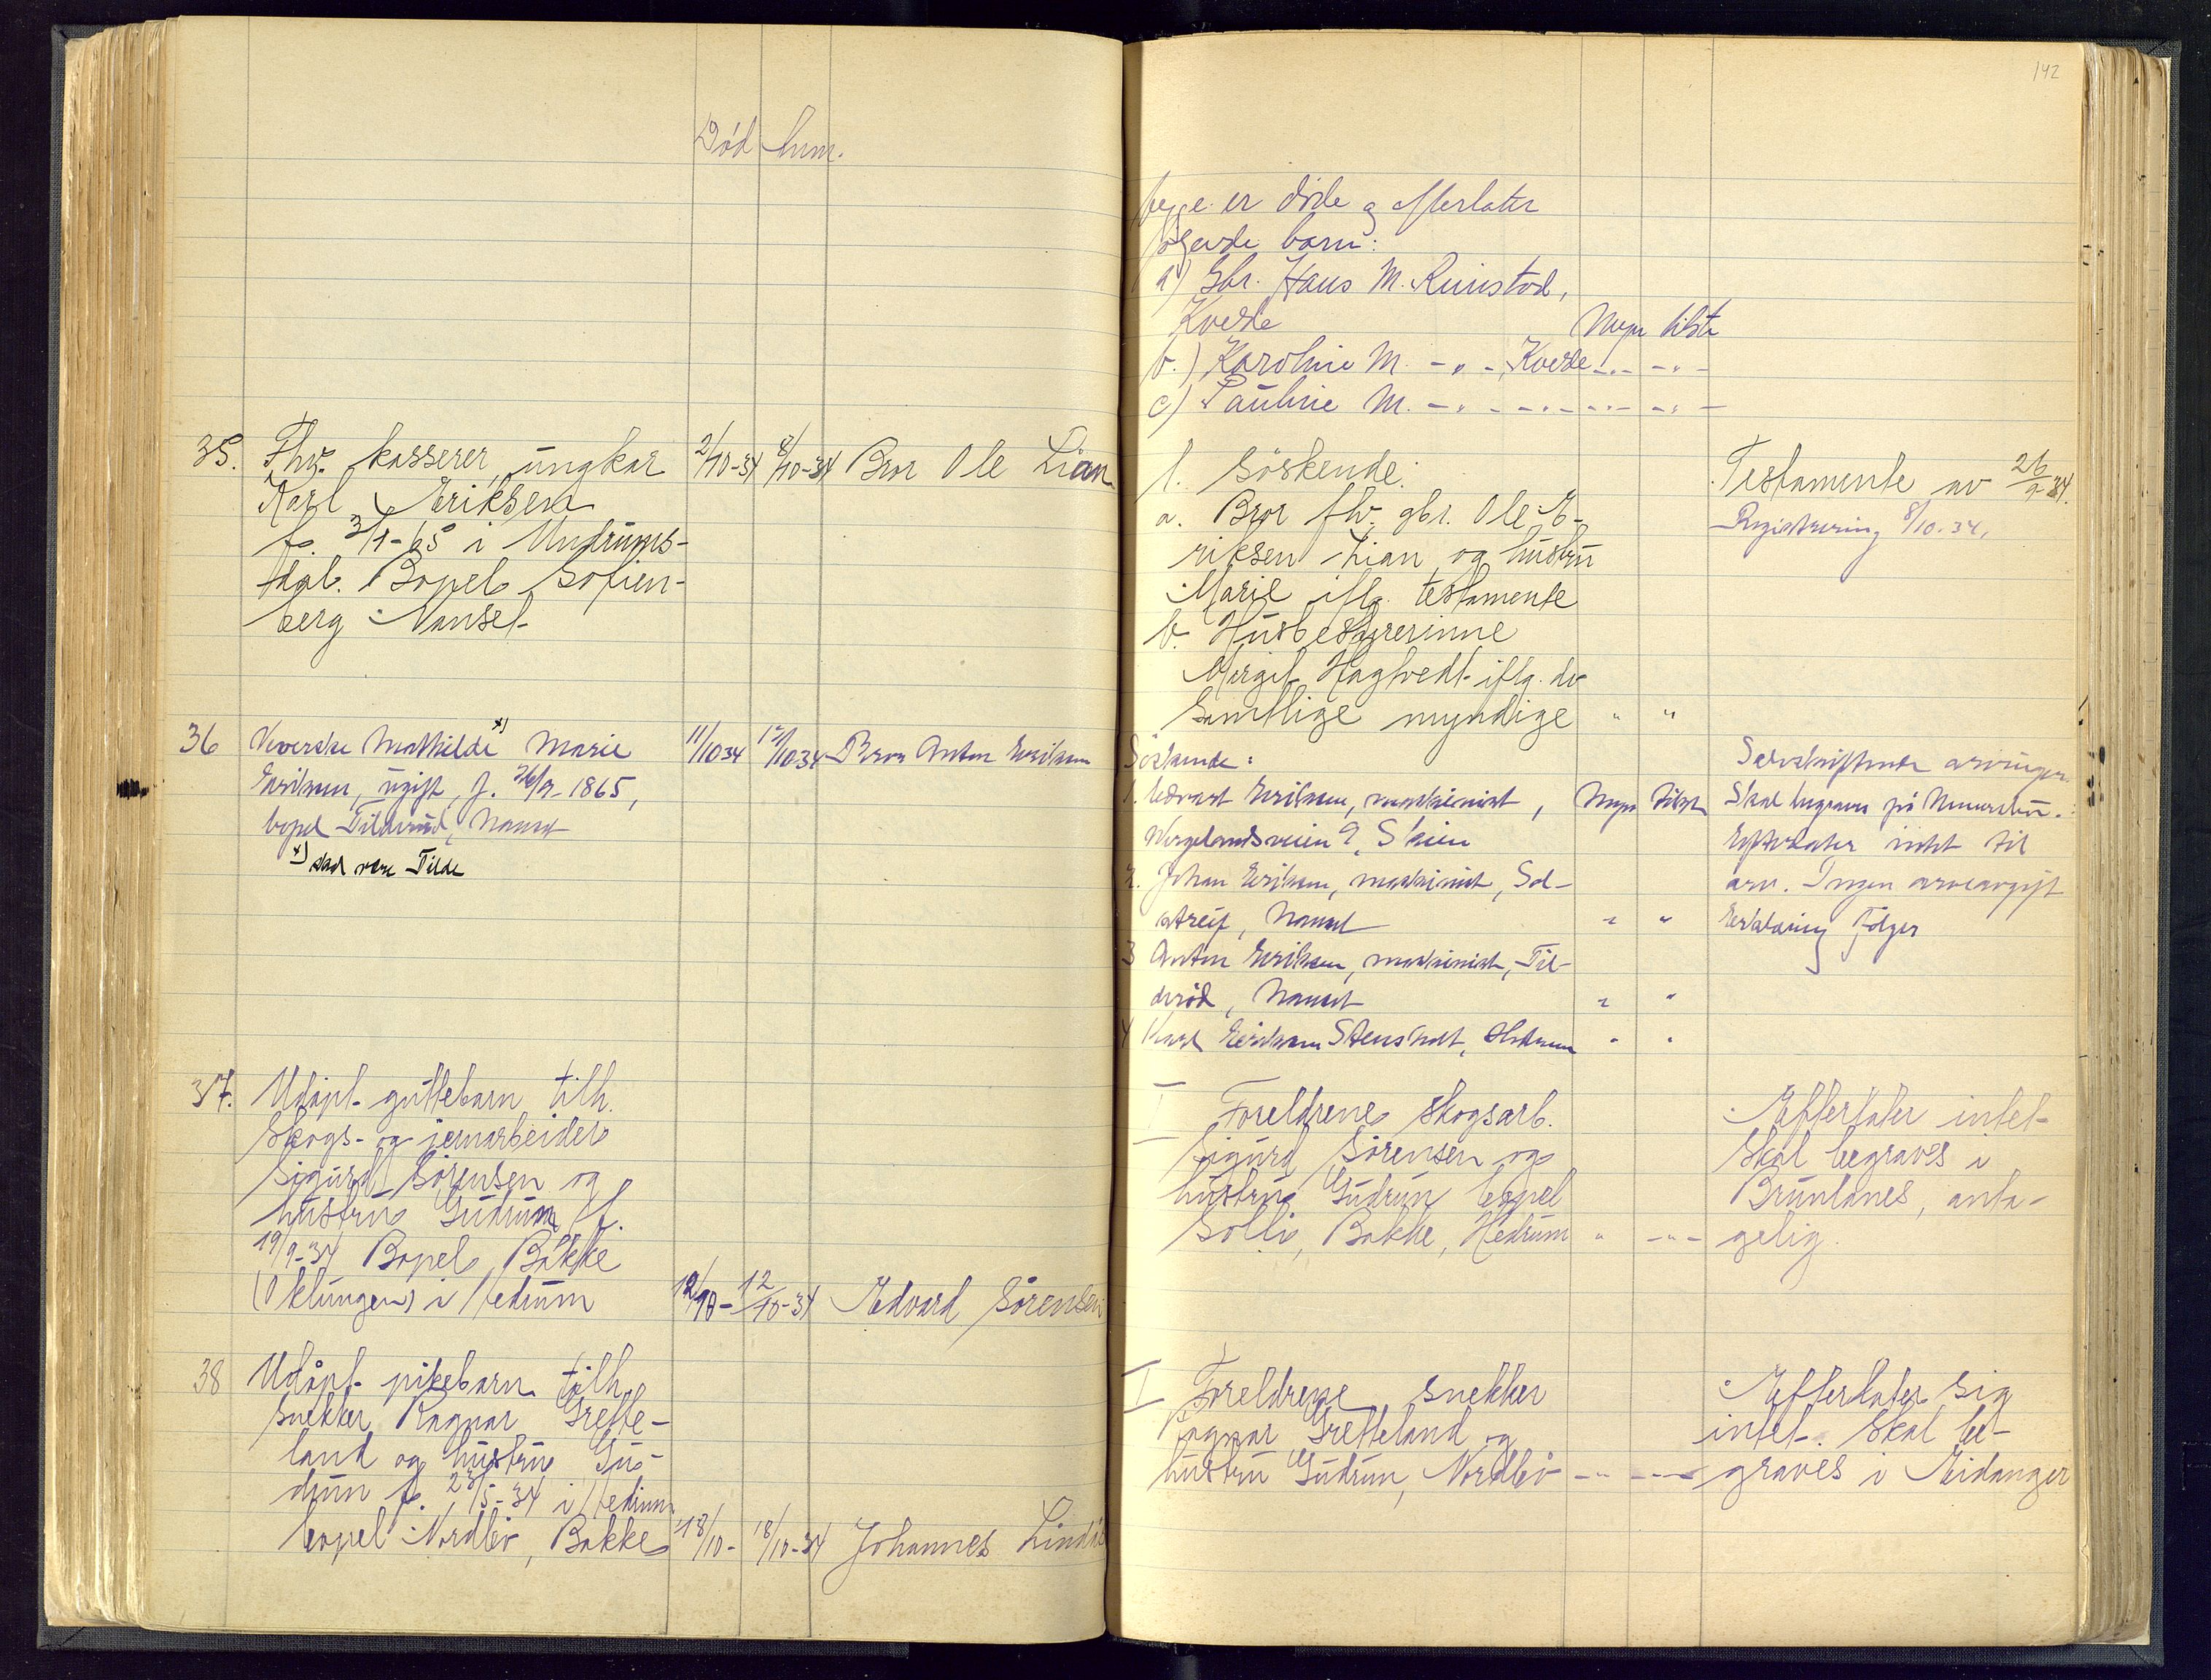 142
Död
begge er döde og efterlater
følgende barn:
a) Gbr. Hans M. Rimstad,
Kvelde Mynd. tilst.
b.) Karoline M. - " - Kvelde - " - - " -
c) Pauline M. - " - - " - - " - - " -
35. Fhv. kasserer, ungkar 2/10-34 8/10-34 Bror Ole Lian
Karl Eriksen
f. 3/1-65 i Undrums-
dal. Bopel Sofien-
berg Nanset
1. Söskende:
a. Bror fhv. gbr. Ole E-
riksen Lian og hustru
Marie iflg. testamente
b. Husbestyrerinne
Margit Hagtvedt iflg. do
Samtlige myndige " "
Testamente av 26/9-34.
Registrering 8/10-34.
36 Veverske Mathilde x) Marie 11/10 34 12/10 34 Bror Anton Eriksen
Eriksen, ugift, f. 26/9-1865,
bopel Tilderød, Nanset
x) skal være Tilde
Söskende:
1. Edvart Eriksen, maskinist, Mynd. tilst.
Wergelandsveien 9, Skien
2. Johan Eriksen, maskinist, Sol-
streif, Nanset " "
3 Anton Eriksen, maskinist, Til-
deröd, Nanset " "
4 Karl Eriksen Stensholt, " "
Selvskiftende arvinger.
Skal begraves på
Efterlater intet til
arv. Ingen arveavgift
Erklæring følger
37. Udöpt guttebarn tilh.
Skogs- og jernarbeider
Sigurd Sörensen og
hustru Gudrun f.
19/9-34 Bopel Bakke
(Oklungen) i Hedrum 12/10- 12/10-34 Edvard Sörensen
I Foreldrene skogsarb.
Sigurd Sörensen og
hustru Gudrun bopel
Solli, Bakke, Hedrum " - " -
Efterlater intet
Skal begraves i
Brunlanes, anta-
gelig.
38 Udöpt pikebarn tilh.
Snekker Ragnar Grette-
land og hustru Gu-
drun f. 23/5-34 i Hedrum
bopel Nordbö, Bakke 18/10- 18/10-34 Johannes
I Foreldrene snekker
Ragnar Gretteland og
hustru Gudrun, Nordbö - " - - " -
Efterlater sig
intet. Skal be-
graves i Eidanger